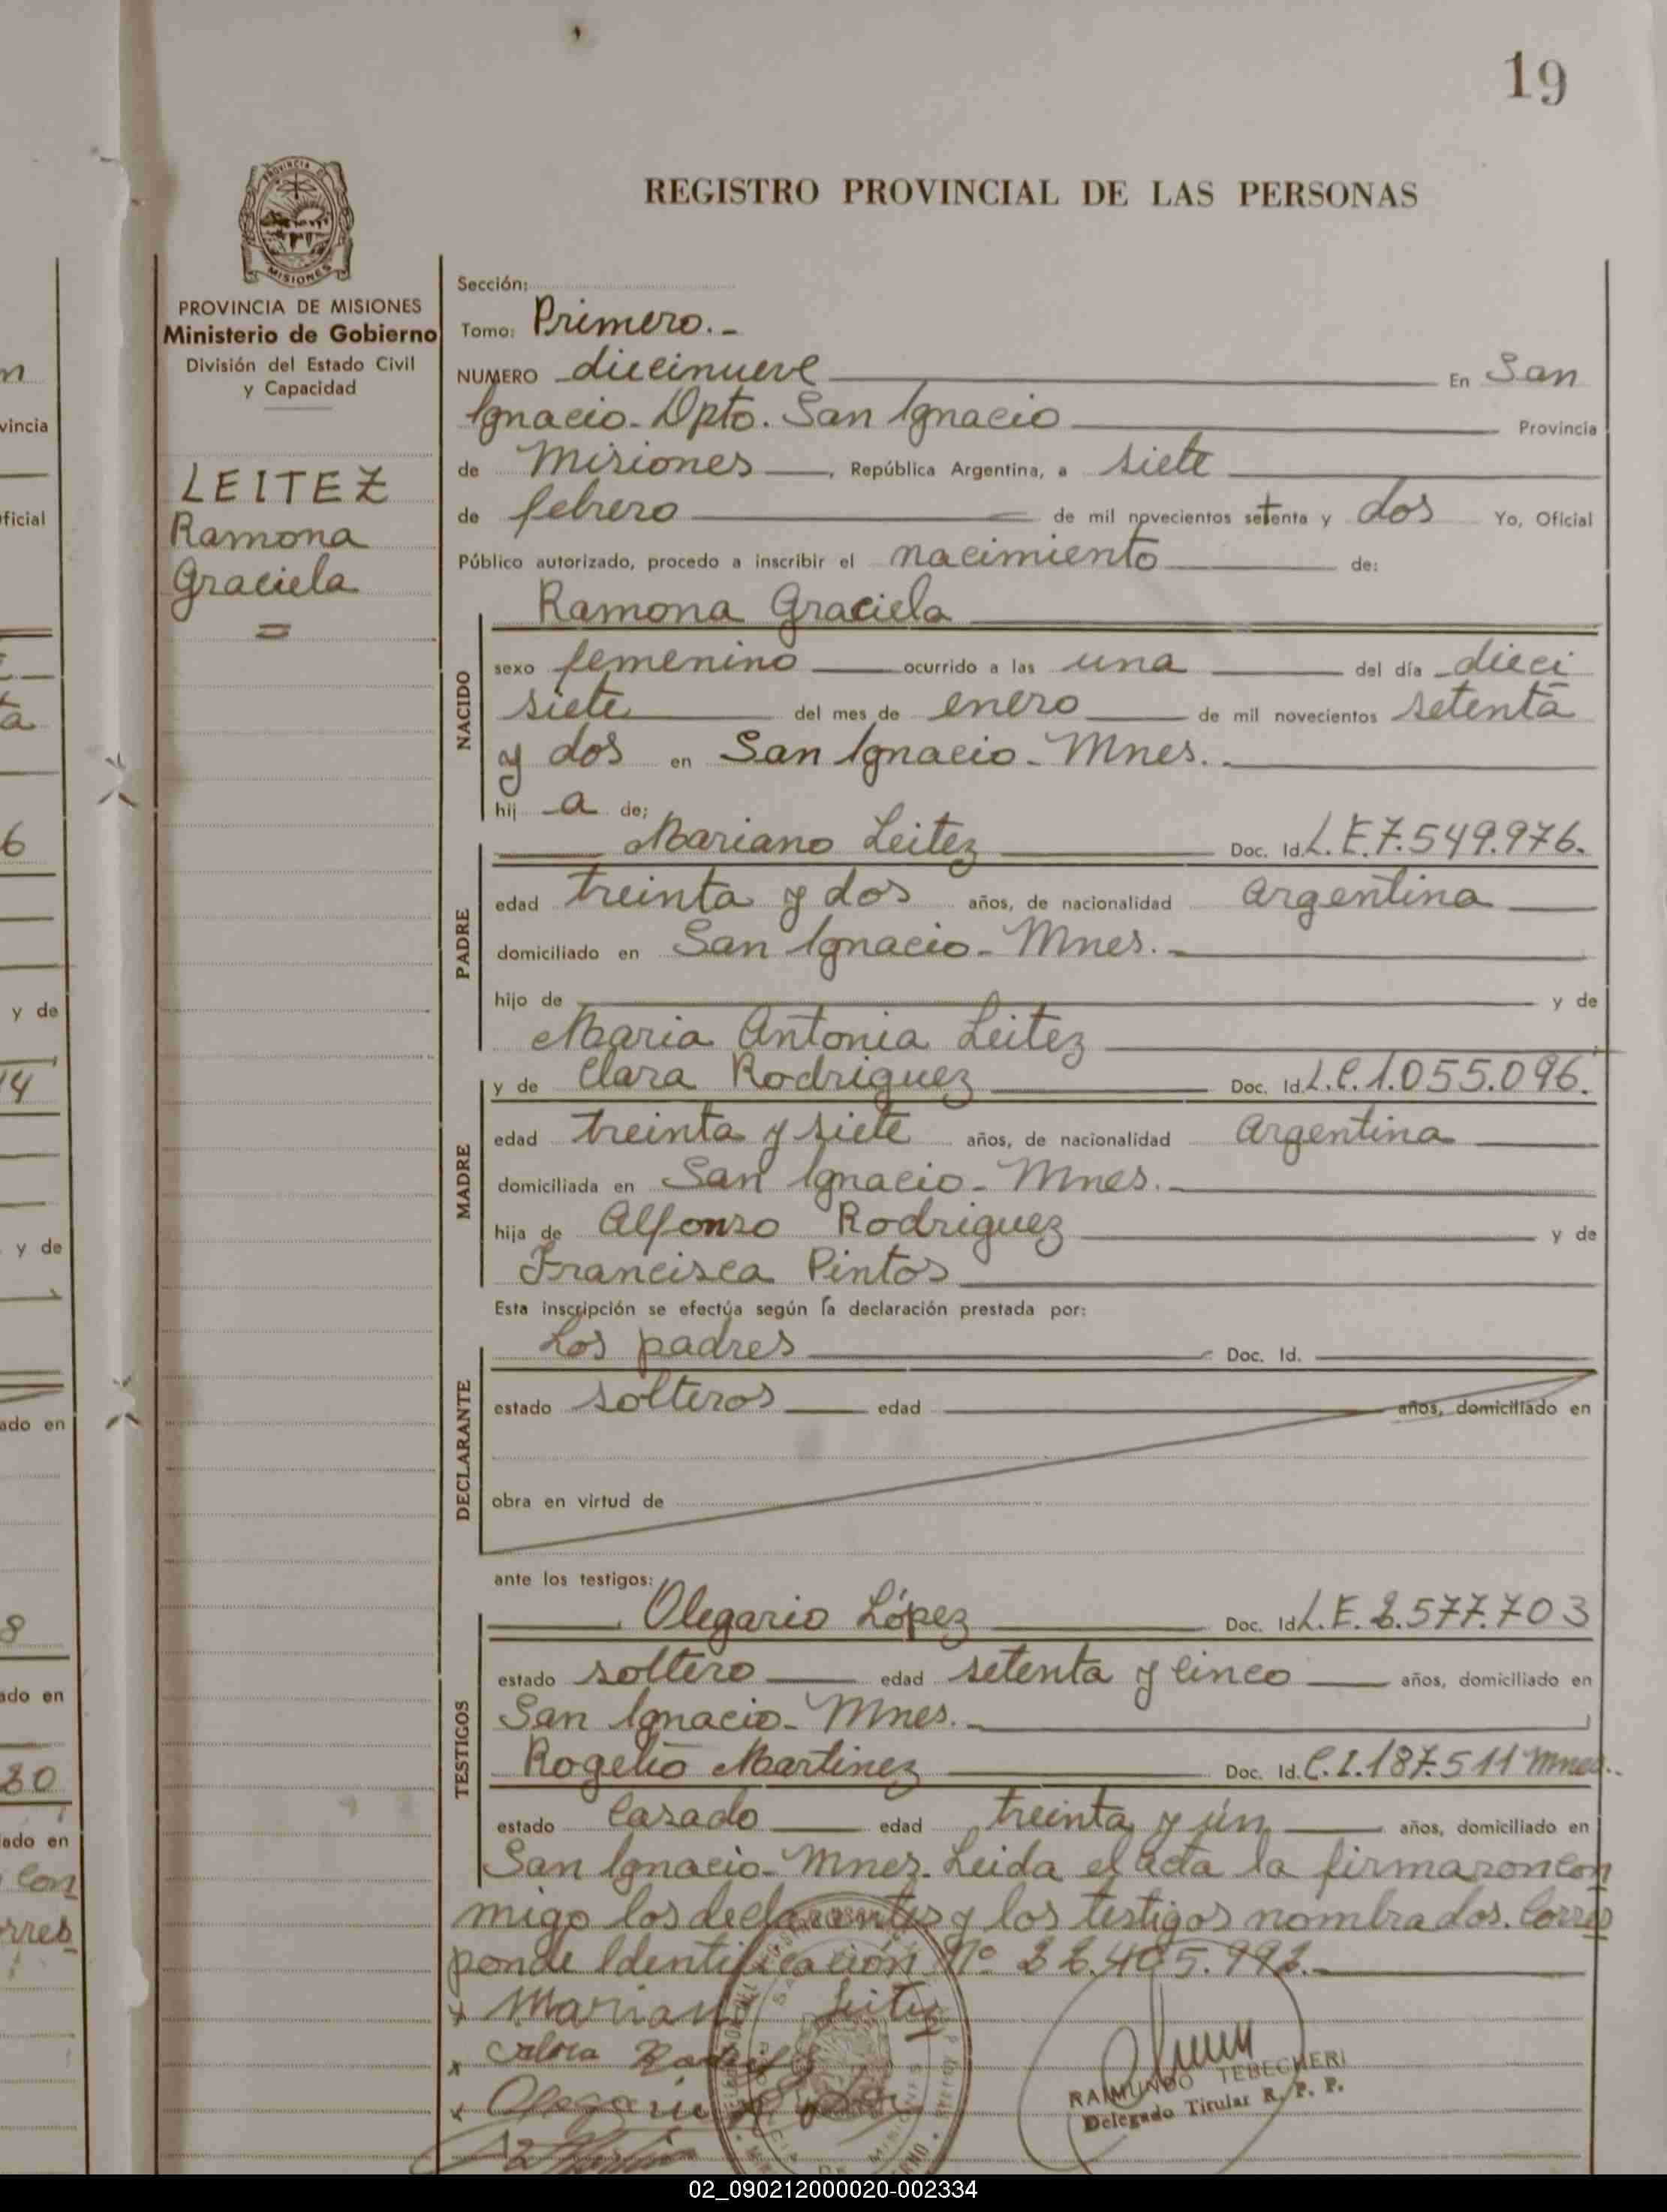 19
REGISTRO PROVINCIAL DE LAS PERSONAS
PROVINCIA DE MISIONES
Ministerio de Gobierno
División del Estado Civil
y Capacidad
LEITEZ
Ramona
Graciela
Sección:
Tomo: Primero.-
NUMERO diecinueve En San
Ignacio - Dpto. San Ignacio Provincia
de Misiones, República Argentina, a siete
de febrero de mil novecientos setenta y dos Yo, Oficial
Público autorizado, procedo a inscribir el nacimiento de:
Ramona Graciela
NACIDO
sexo femenino ocurrido a las una del día dieci
siete del mes de enero de mil novecientos setenta
y dos en San Ignacio - Mnes.
hij a de;
PADRE
Mariano Leitez Doc. Id. L.E. 7.549.976.
edad treinta y dos años, de nacionalidad argentina
domiciliado en San Ignacio - Mnes.-
hijo de y de
Maria Antonia Leitez
MADRE
y de Clara Rodriguez Doc. Id. L.C. 1.055.096.
edad treinta y siete años, de nacionalidad argentina
domiciliada en San Ignacio - Mnes.-
hija de Alfonso Rodriguez y de
Francisca Pintos
Esta inscripción se efectúa según la declaración prestada por:
DECLARANTE
Los padres Doc. Id.
estado solteros edad años, domiciliado en
obra en virtud de
ante los testigos:
TESTIGOS
Olegario López Doc. Id. L.E. 2.577.703
estado soltero edad setenta y cinco años, domiciliado en
San Ignacio - Mnes.-
Rogelio Martinez Doc. Id. C.I. 187.511 Mnes.
estado casado edad treinta y ún años, domiciliado en
San Ignacio - Mnes. Leida el acta la firmaron con
migo los declarantes y los testigos nombrados. Corres
ponde Identificación Nº 22.405.992.-
x Mariano Leitez
x
x Olegario
RAIMUNDO TEBECHERI
Delegado Titular R. P. P.
02_090212000020-002334